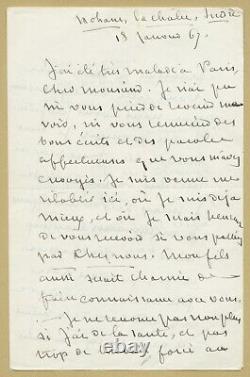 Nohant, La Châtre, Indre
18 janvier 67.
J'ai été très malade à Paris,
cher monsieur. Je n'ai pu
ni vous prier de revenir me
voir, ni vous remercier des
bons écrits et des paroles
affectueuses que vous m'avez
envoyés. Je suis venue me
rétablir ici, où je suis déjà
mieux, et où je serais heureuse
de vous recevoir si vous passiez
par chez nous. Mon fils
aussi serait charmé de
faire connaissance avec vous.
Je ne renonce pas non plus
si j'ai de la santé, et pas
trop de travail forcé au